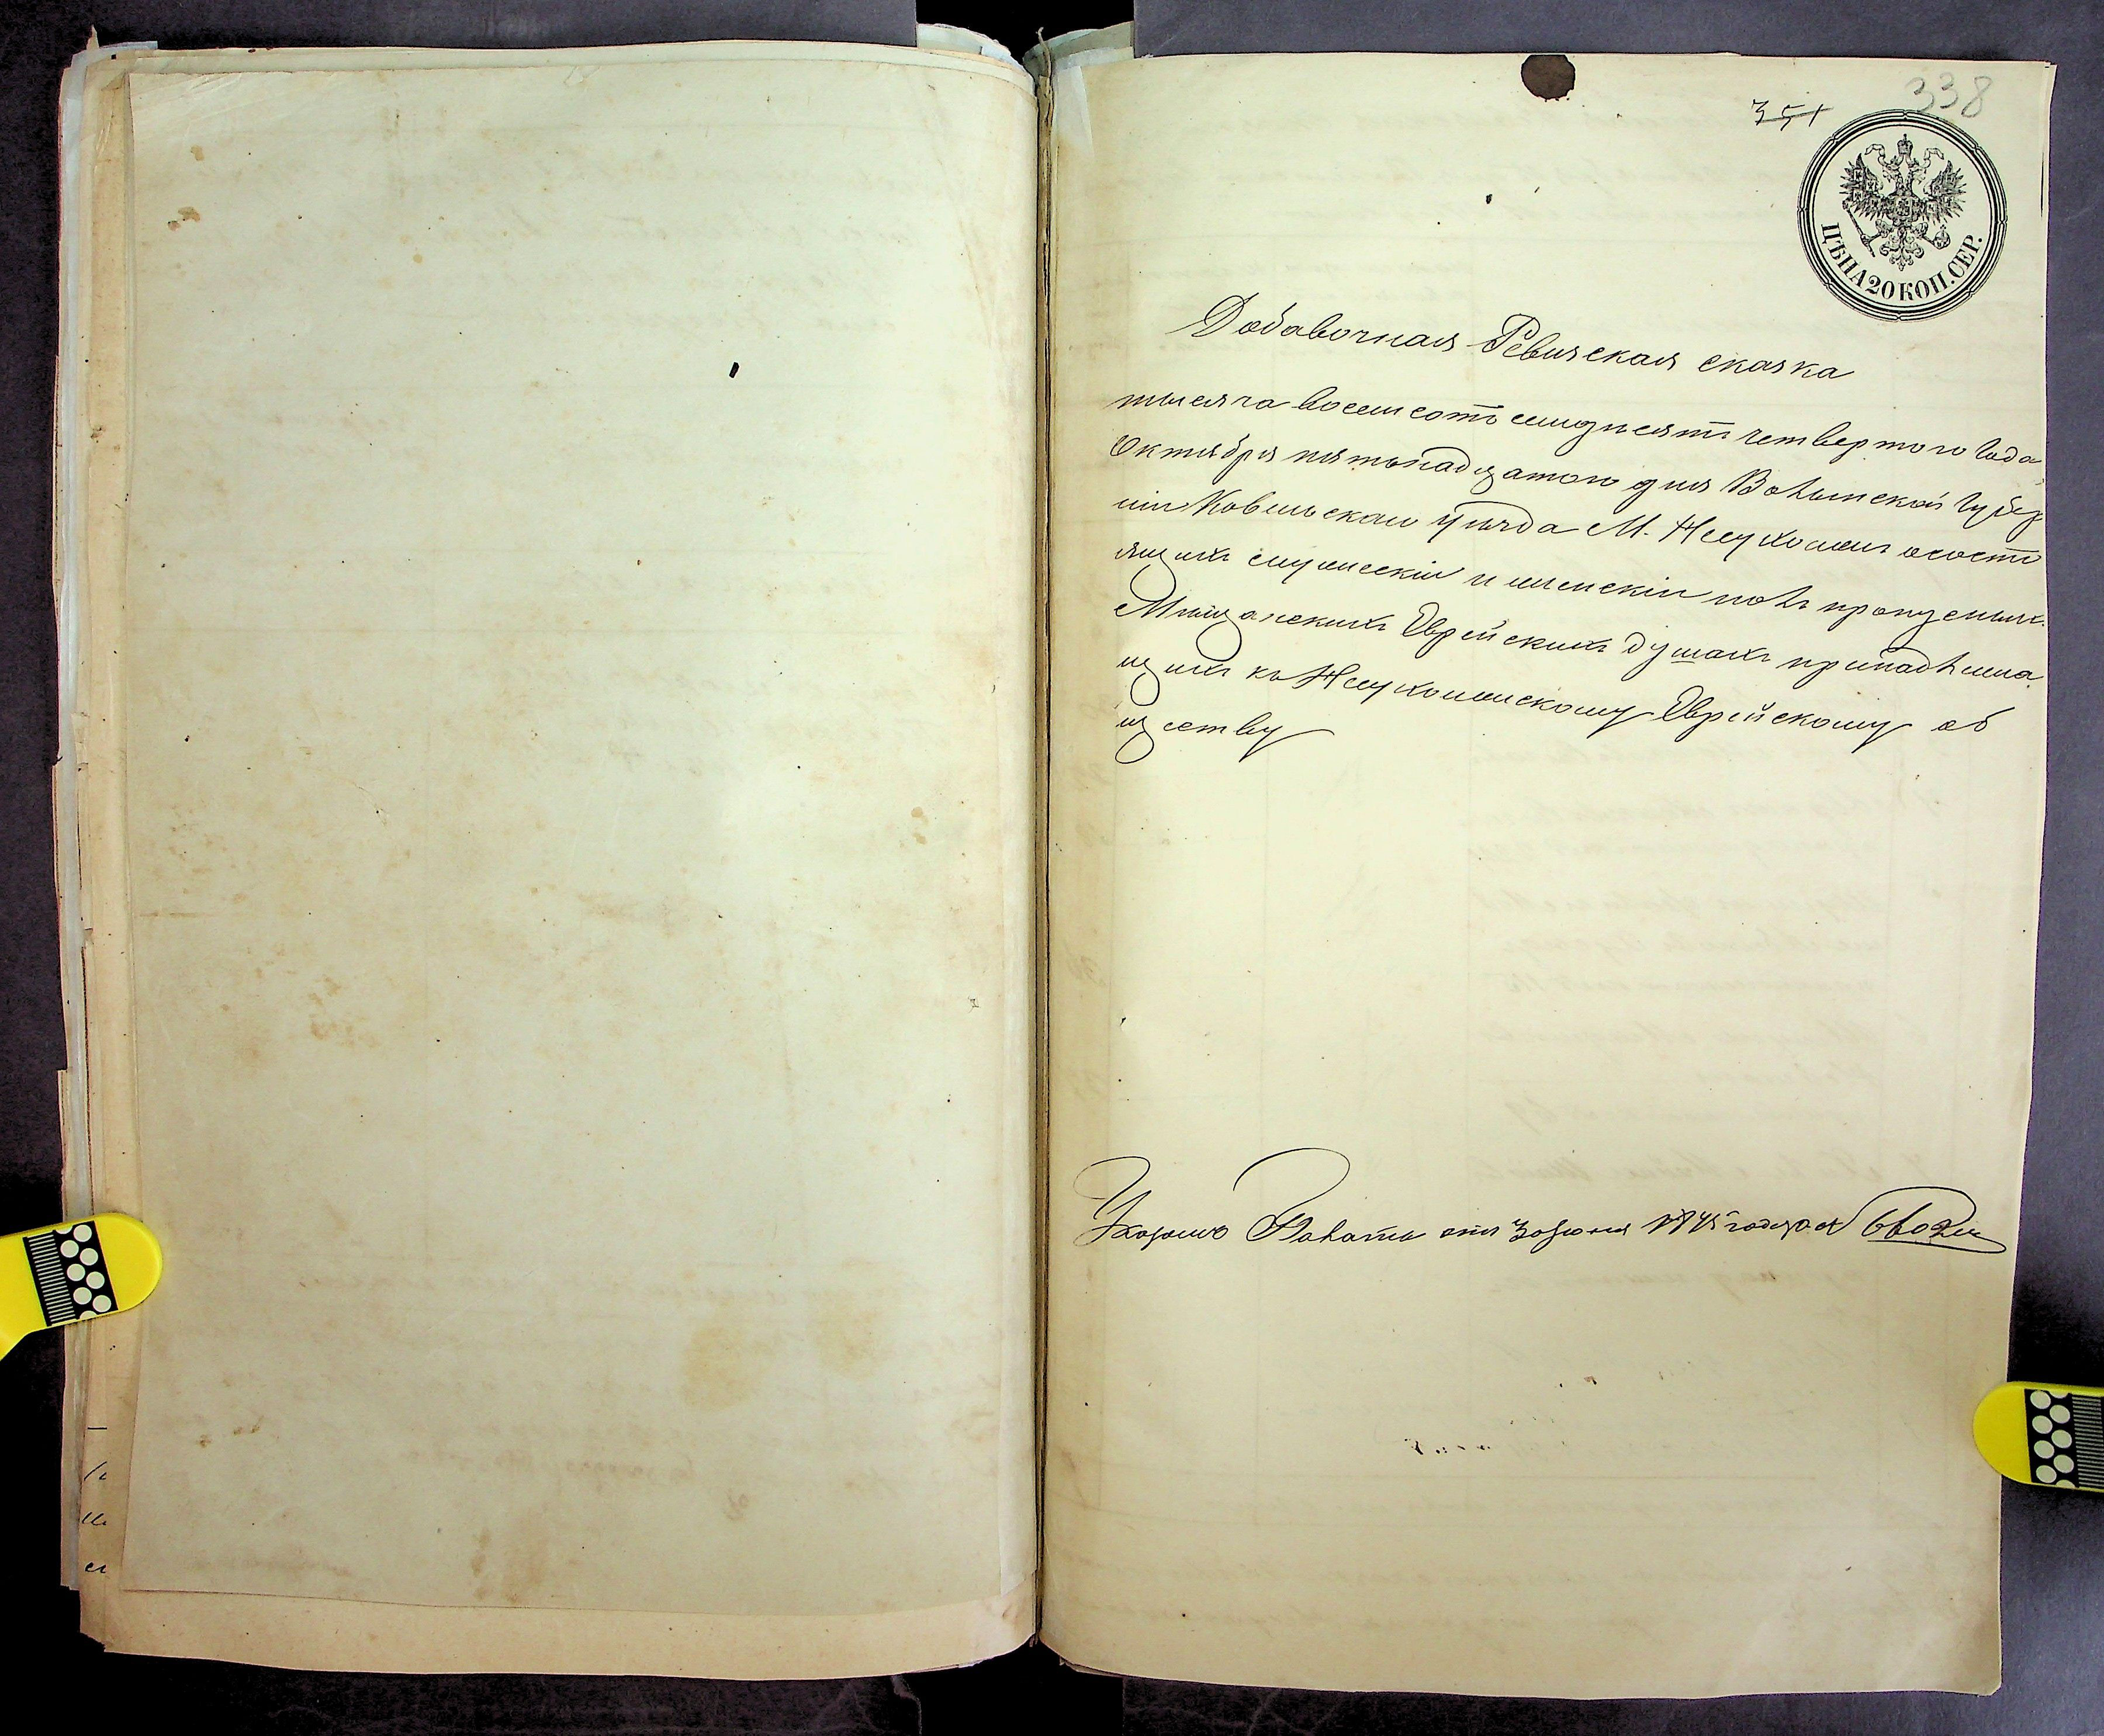 338
351
ЦѢНА 20 КОП. СЕР.
Добавочная Ревизская сказка
тысяча восемсотъ семдесятъ четвертого Года
Октября пятьнадцатого дня Волынской Губер
нiи Ковельскаго уѣзда М. Несухоижъ ососто
ящихъ мужескiй и женскiй полъ
Мѣщанскихъ Еврейскихъ душахъ принадлежа
щихъ къ Несухоижскому Еврейскому об
ществу
Указ Палаты отъ 30 Iюня 1875 года за №